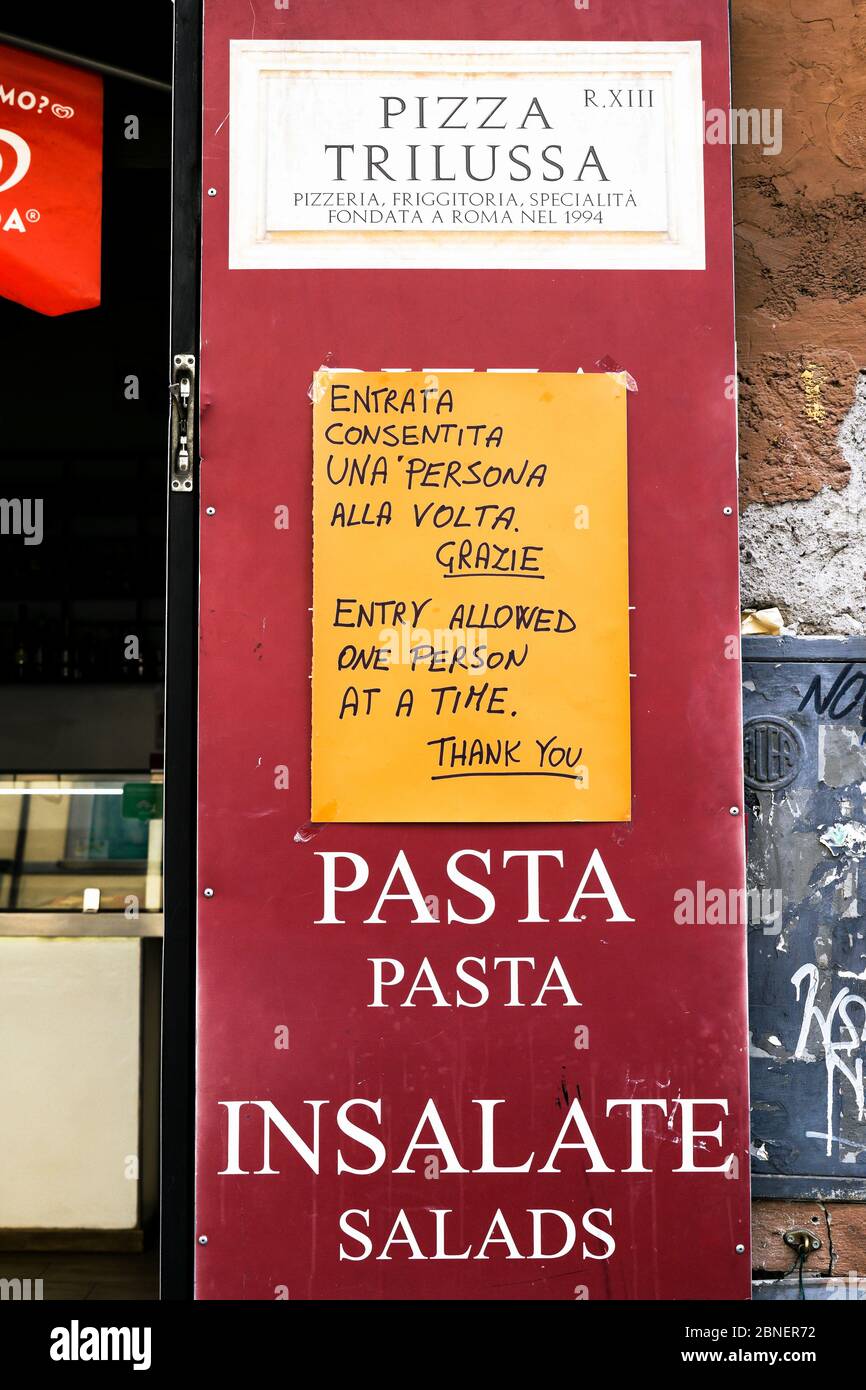 MO?
DA®
R.XIII
PIZZA
TRILUSSA
PIZZERIA, FRIGGITORIA, SPECIALITÀ
FONDATA A ROMA NEL 1994
ENTRATA
CONSENTITA
UNA PERSONA
ALLA VOLTA.
GRAZIE
ENTRY ALLOWED
ONE PERSON
AT A TIME.
THANK YOU
PASTA
PASTA
INSALATE
SALADS
alamy
Image ID: 2BNER72
www.alamy.com